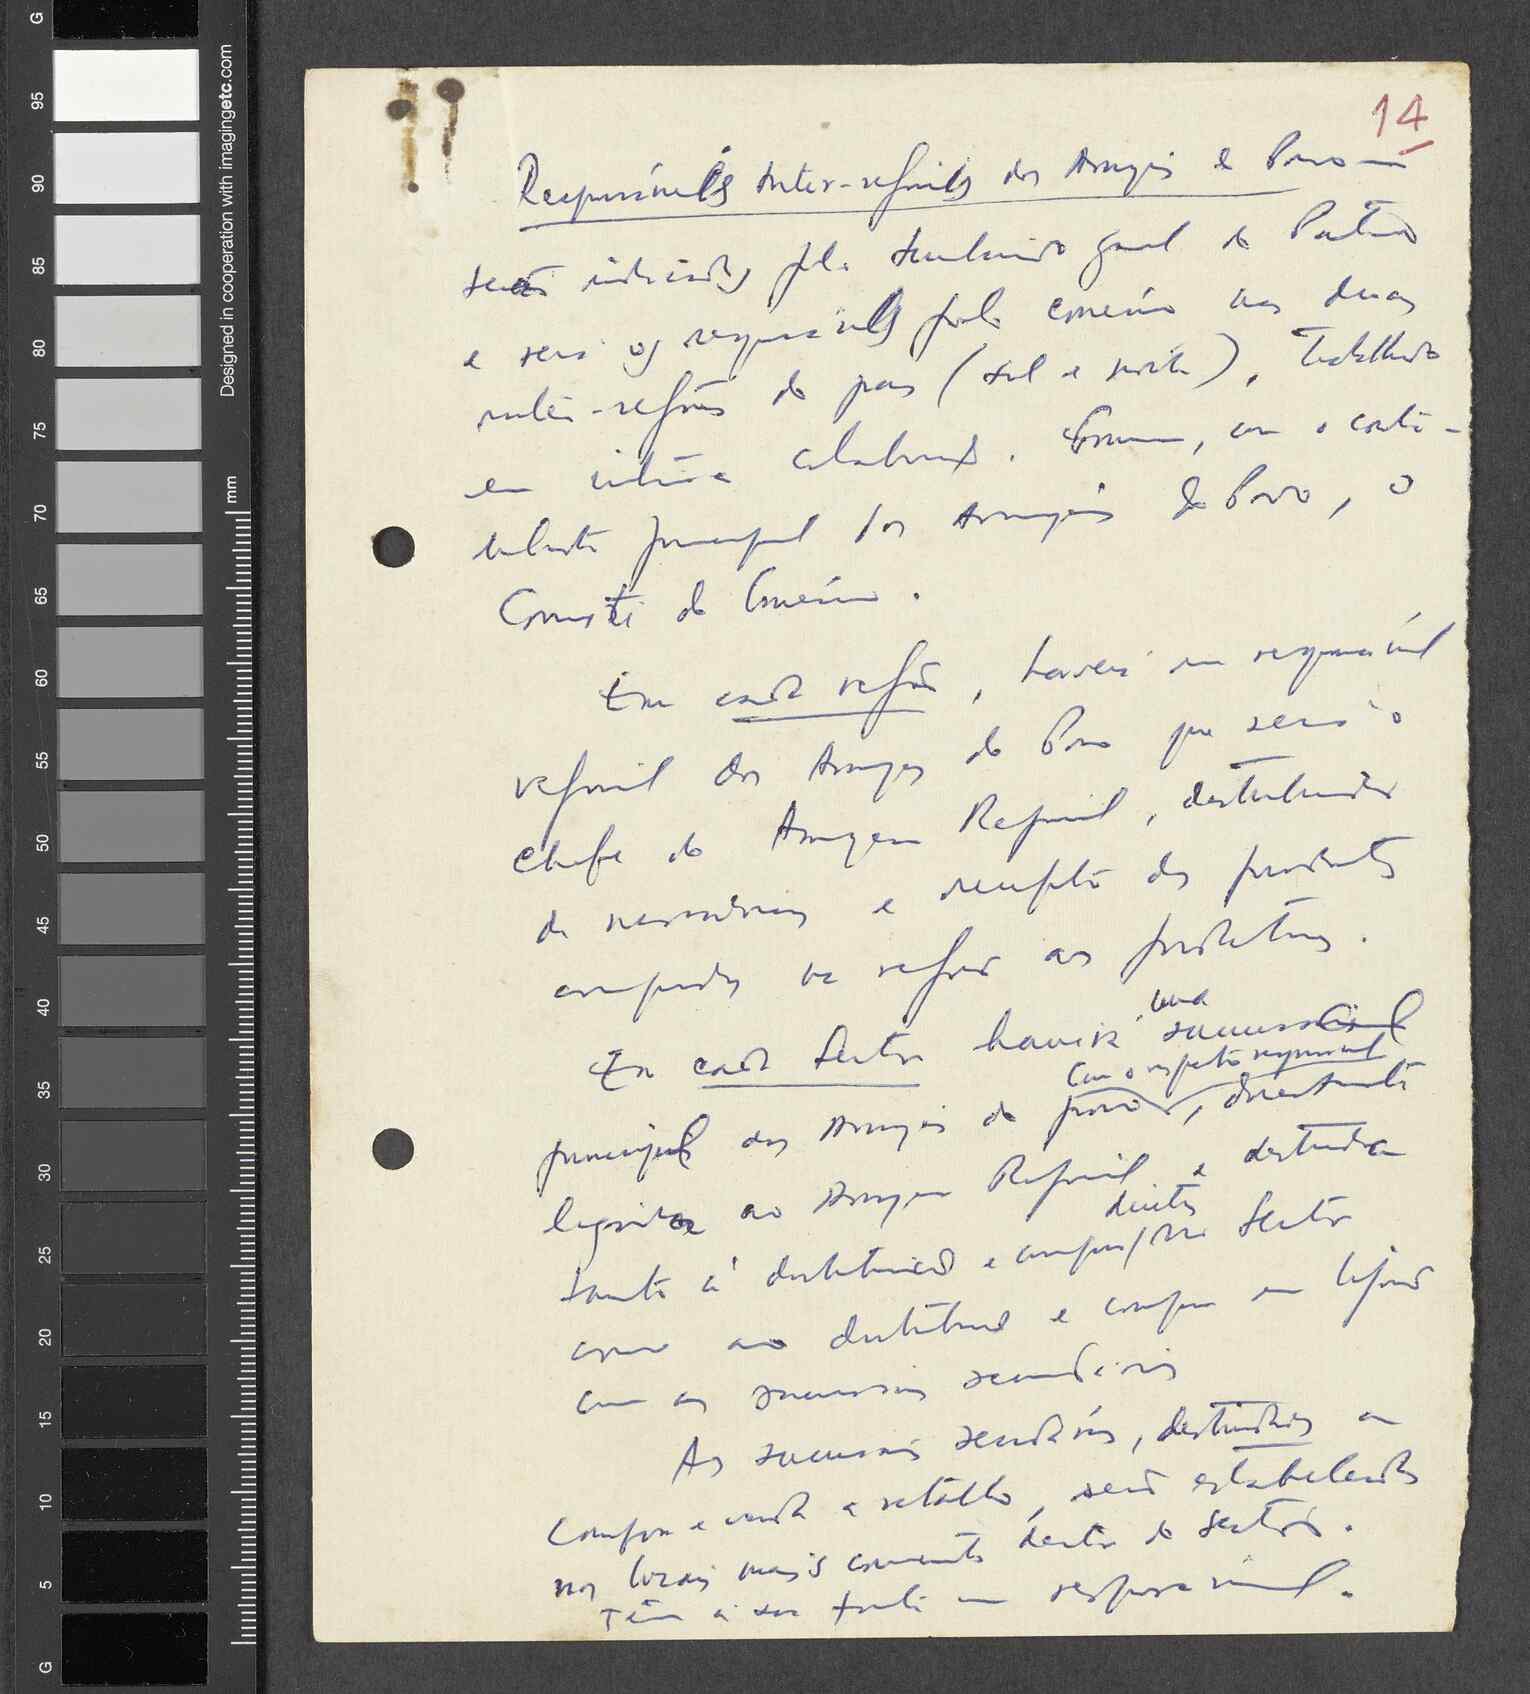 G
95
90
85
80
75
70
65
60
55
50
45
40
35
30
25
20
15
10
5
G
Designed in cooperation with imagingetc.com
mm
14
Responsáveis Inter-regiões dos Armazéns do Povo —
serão indicados pelo Secretariado Geral do Partido
e serão os responsáveis pelo comércio nas duas
inter-regiões do país (sul e norte), trabalhando
em íntima colaboração. Formam, com o
principal dos Armazéns do Povo, o
Comité do Comércio.
Em cada região, haverá um responsável
regional dos Armazéns do Povo que será o
chefe do Armazém Regional, distribuidor
de mercadorias e dos produtos
comprados na região aos produtores.
Em cada Sector haverá uma sucursal
principal dos Armazéns do povo, com o respectivo responsável, directamente
ligada ao Armazém Regional e destinada
tanto à distribuição e compras directas no Sector
como ao distribuição e compra em ligação
com as sucursais secundárias
As sucursais secundárias, destinadas a
compra e venda a retalho, serão estabelecidas
nos locais mais convenientes dentro do Sector.
Têm à sua frente um responsável.